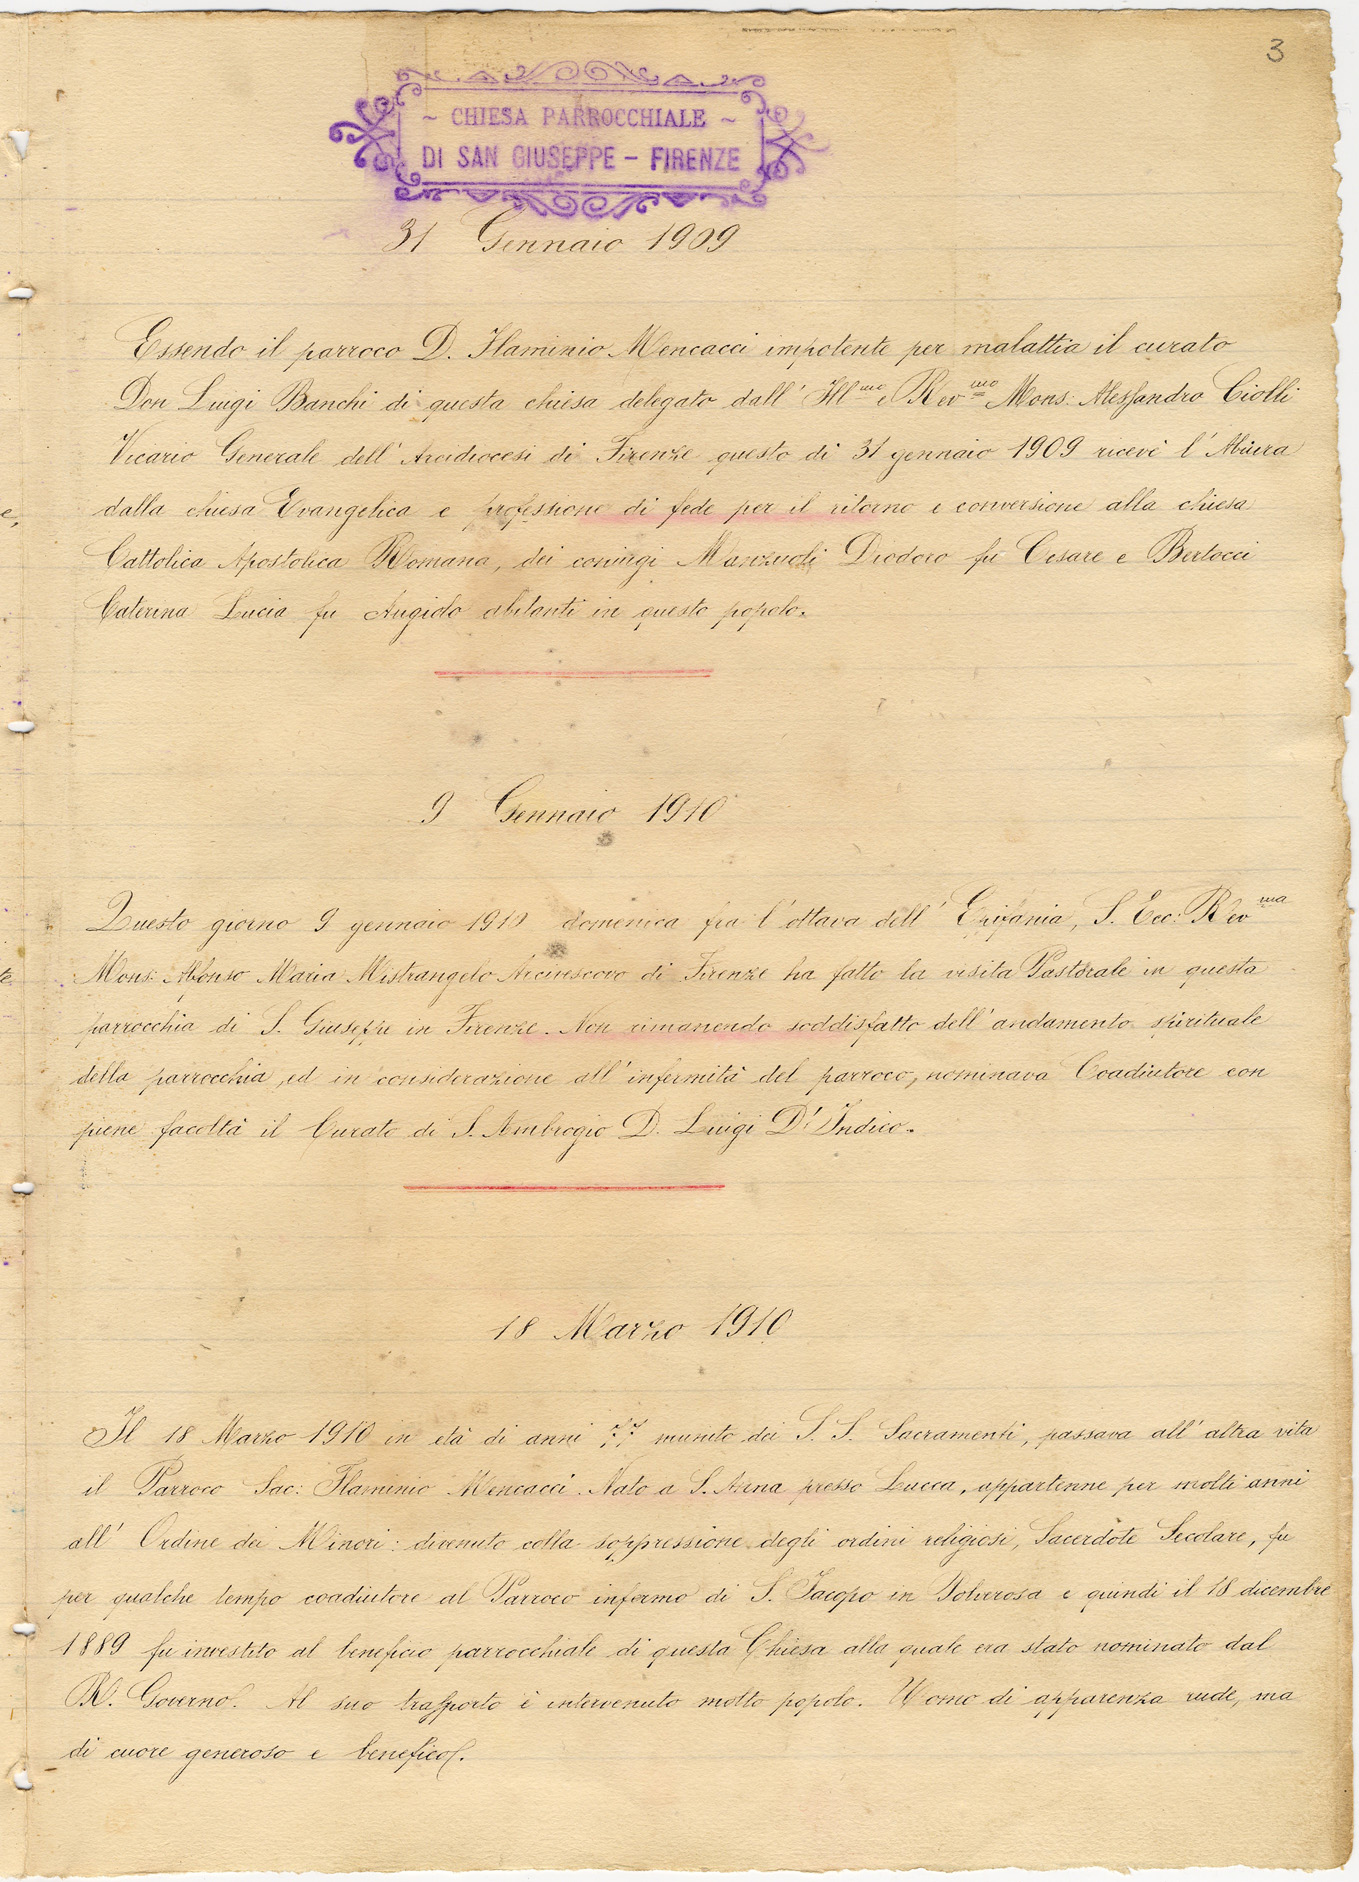 3
~ CHIESA PARROCCHIALE ~
DI SAN GIUSEPPE – FIRENZE
31 Gennaio 1909
Essendo il parroco D. Flaminio Mencacci impotente per malattia il curato
Don Luigi Banchi di questa chiesa delegato dall' Ill.mo e Rev.mo Mons: Alessandro Ciolli
Vicario Generale dell' Arcidiocesi di Firenze questo dì 31 gennaio 1909 ricevè l' Abiura
dalla chiesa Evangelica e professione di fede per il ritorno e conversione alla chiesa
Cattolica Apostolica Romana, dei coniugi Manzuoli Diodoro fu Cesare e Bertocci
Caterina Lucia fu abitanti in questo popolo.
9 Gennaio 1910
Questo giorno 9 gennaio 1910 domenica fra l'ottava dell' Epifania, S. Ecc: Rev ma
Mons: Alfonso Maria Mistrangelo Arcivescovo di Firenze ha fatto la visita Pastorale in questa
parrocchia di S. Giuseppe in Firenze. Non rimanendo soddisfatto dell'andamento spirituale
della parrocchia, ed in considerazione all'infermità del parroco, nominava Coadiutore con
piene facoltà il Curato di S. Ambrogio D. Luigi D'Indico.
18 Marzo 1910
Il 18 Marzo 1910 in età di anni 77 munito dei S. S. Sacramenti, passava all'altra vita
il Parroco Sac: Flaminio Mencacci. Nato a S. Anna presso Lucca, appartenne per molti anni
all' Ordine dei Minori: divenuto colla soppressione degli ordini religiosi, Sacerdote Secolare, fu
per qualche tempo coadiutore al Parroco infermo di S. Jacopo in Polverosa e quindi il 18 dicembre
1889 fu investito al beneficio parrocchiale di questa Chiesa alla quale era stato nominato dal
R. Governo. Al suo trasporto è intervenuto molto popolo. Uomo di apparenza rude, ma
di cuore generoso e benefico.